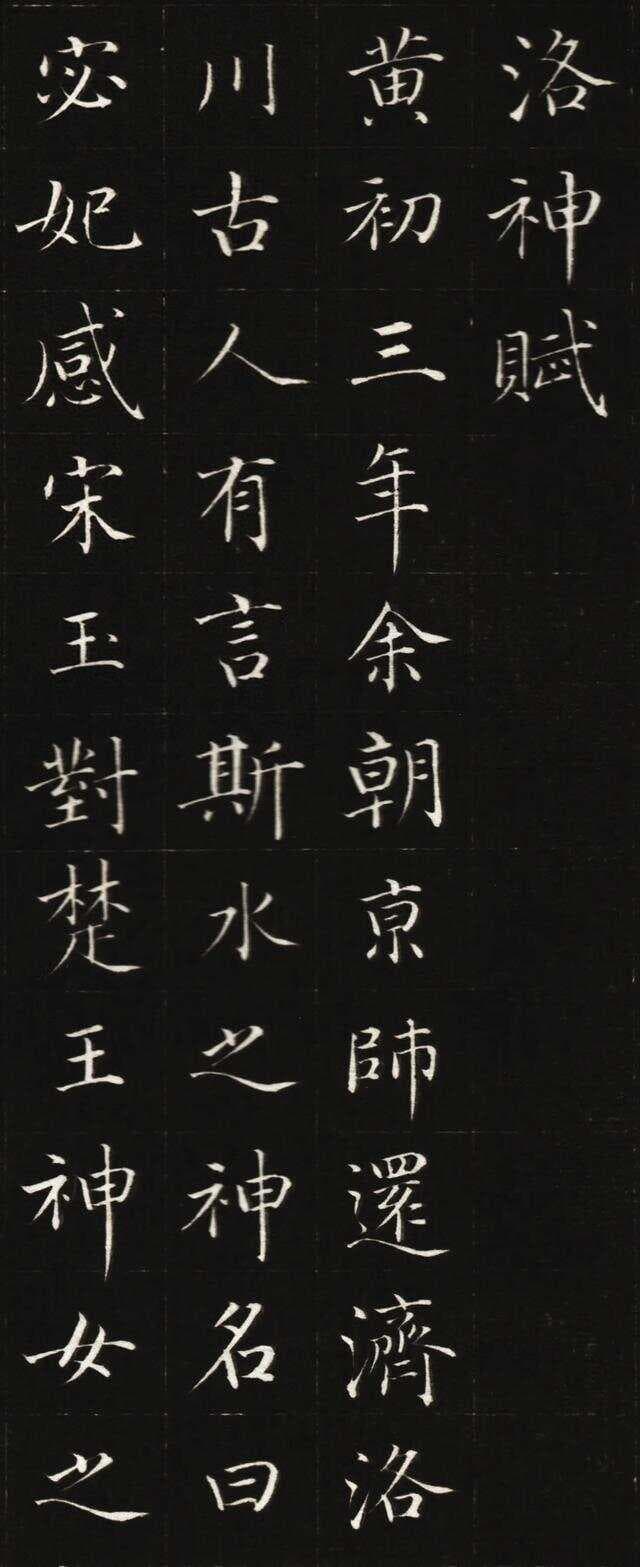 洛神賦
黄初三年余朝京師還濟洛
川古人有言斯水之神名曰
宓妃感宋玉對楚王神女之